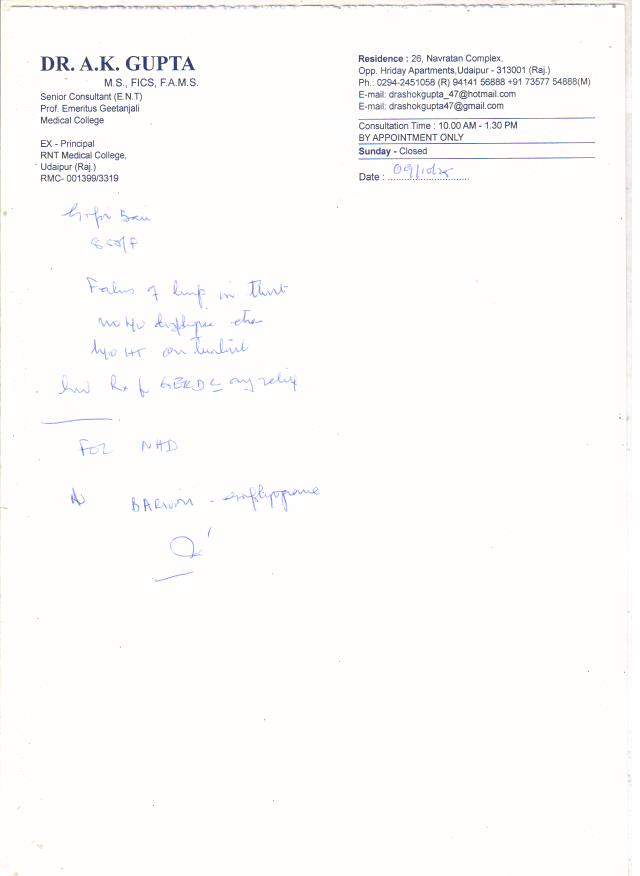 DR. A.K. GUPTA
M.S., FICS, F.A.M.S.
Senior Consultant (E.N.T)
Prof. Emeritus Geetanjali
Medical College
EX - Principal
RNT Medical College,
Udaipur (Raj.)
RMC- 001399/3319
Residence : 26, Navratan Complex,
Opp. Hriday Apartments,Udaipur - 313001 (Raj.)
Ph.: 0294-2451058 (R) 94141 56888 +91 73577 54888(M)
E-mail: drashokgupta_47@hotmail.com
E-mail: drashokgupta47@gmail.com
Consultation Time : 10.00 AM - 1.30 PM
BY APPOINTMENT ONLY
Sunday - Closed
Date : 09/10/25
of lump in
no H/o
H/o HT on
GERD
NAD